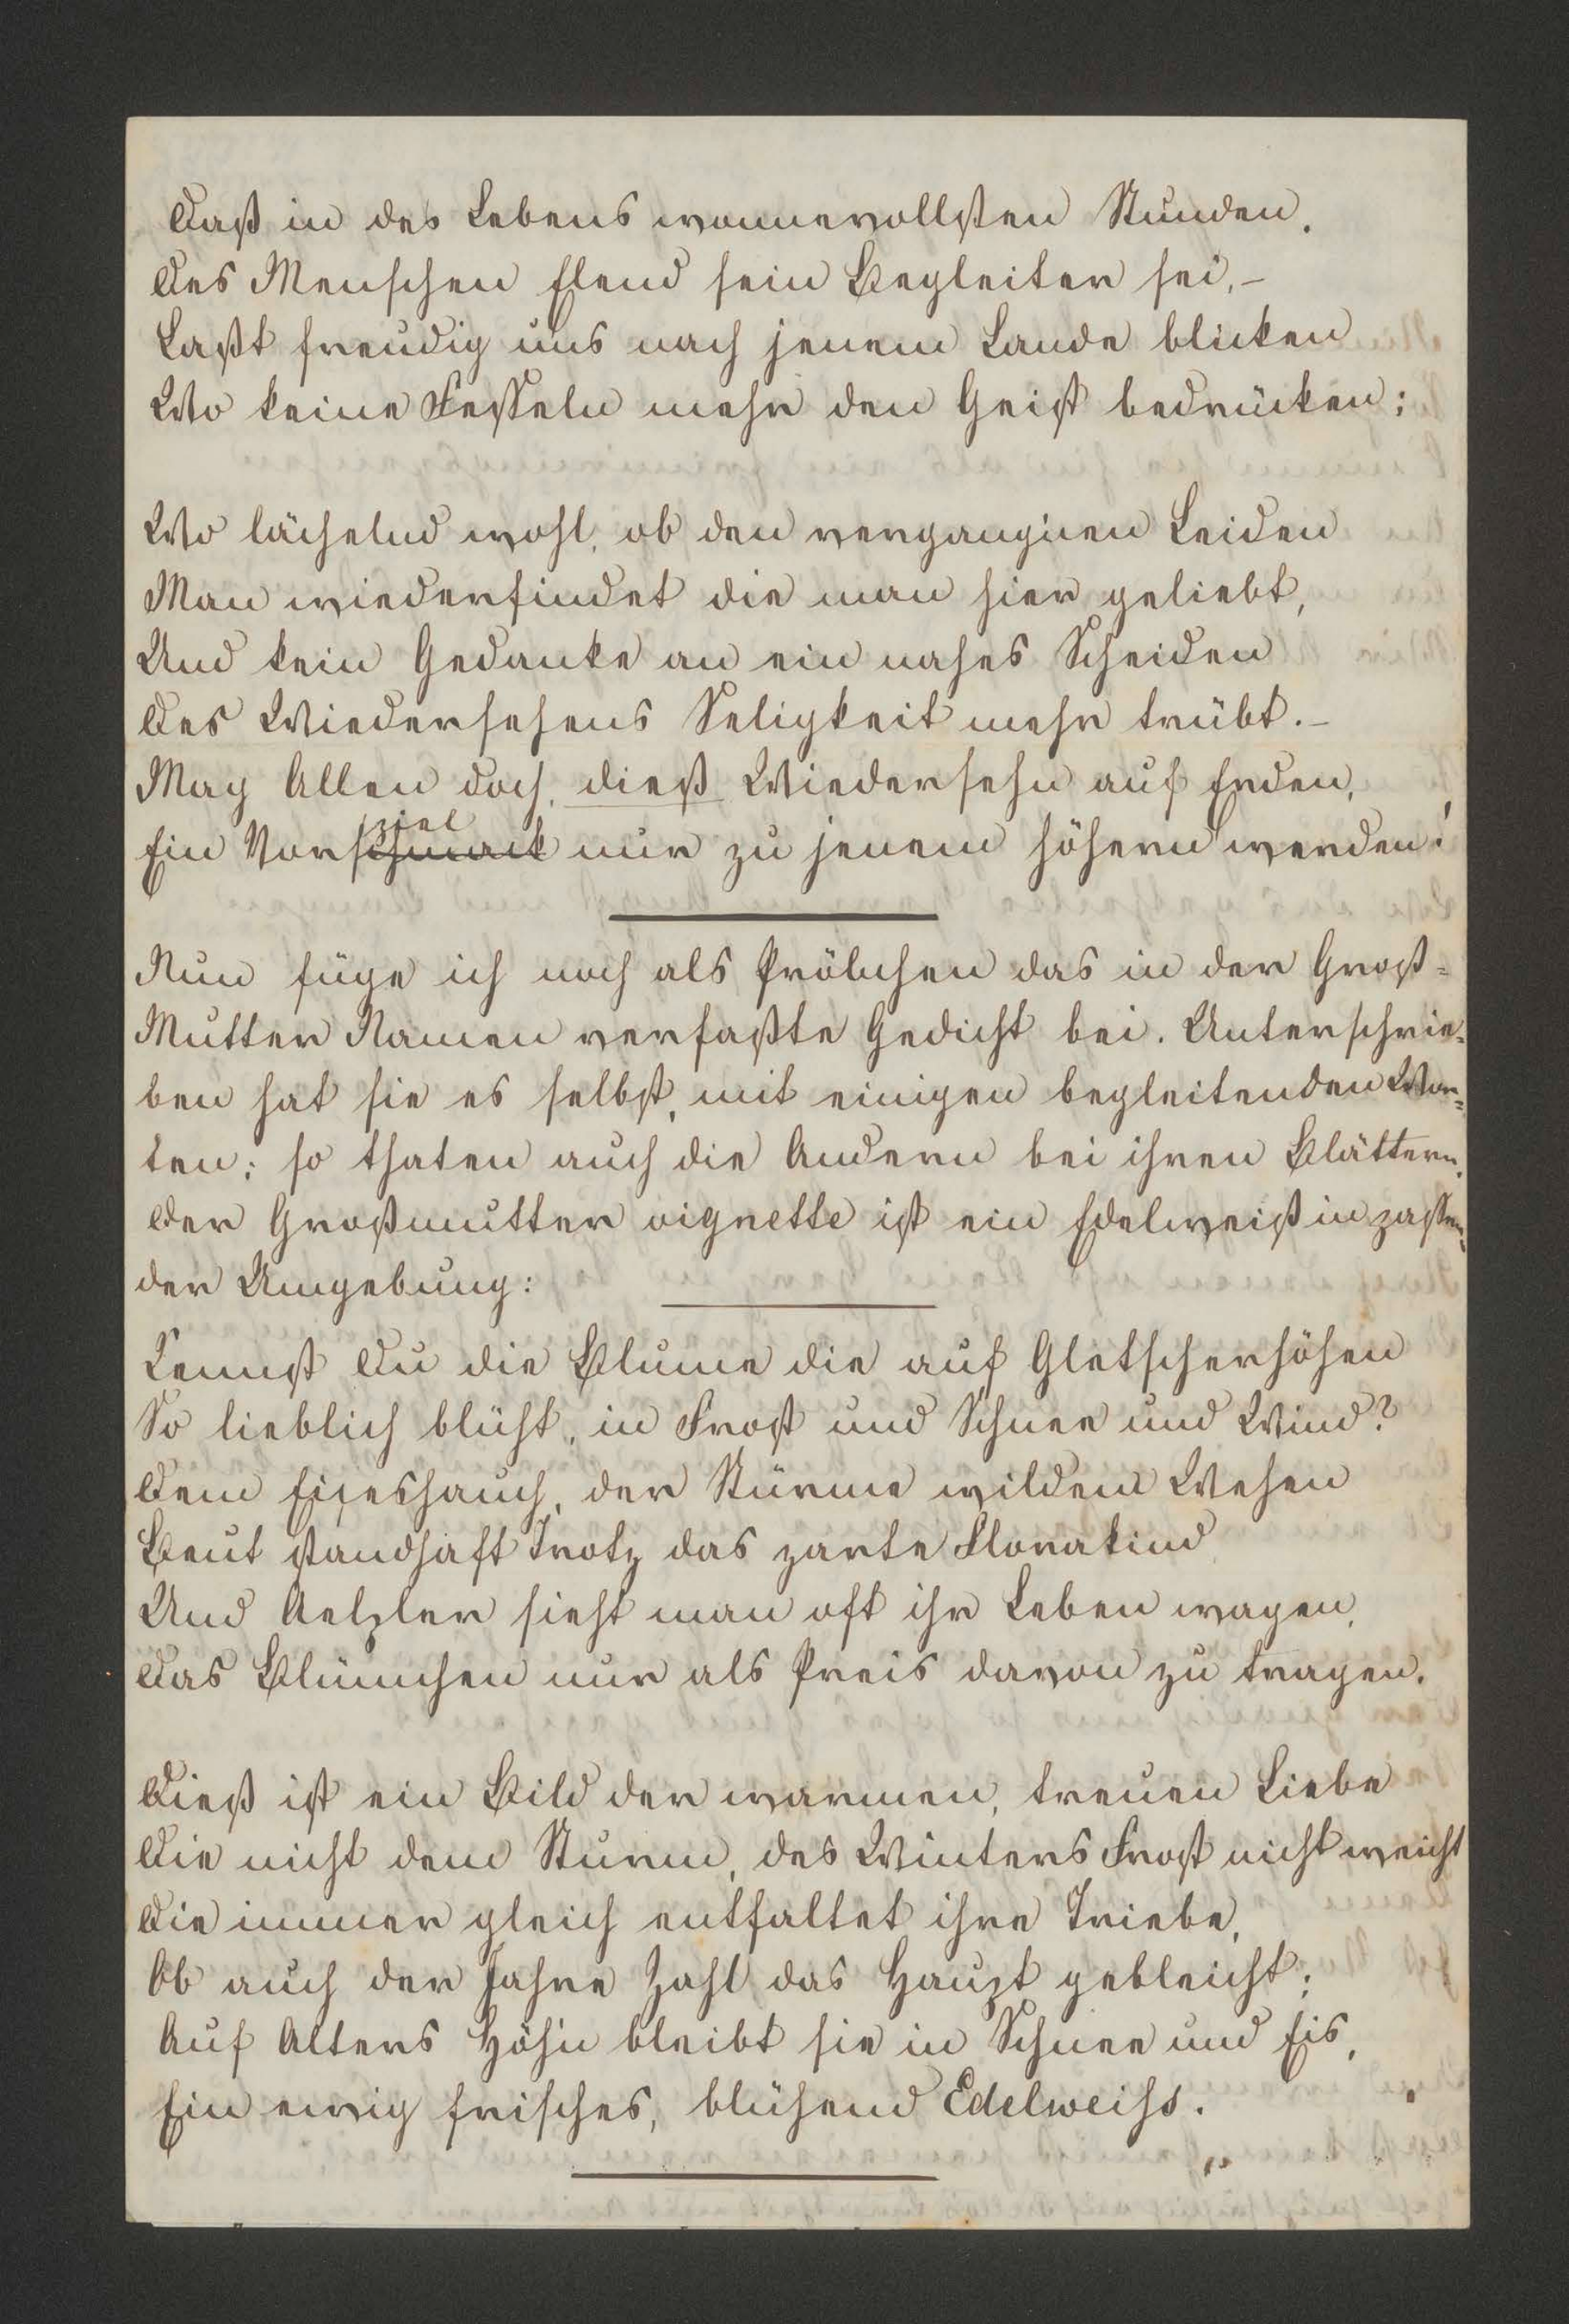 Daß in des Lebens wonnevollsten Stunden,
Des Menschen Elend sein Begleiter sei,–
Laßt freudig uns nach jenem Lande blicken
Wo keine Fesseln mehr den Geist bedrücken;
Wo lächelnd wohl, ob den vergang'nen Leiden
Man wiederfindet die man hier geliebt,
Und kein Gedanke an ein nahes Scheiden
Des Wiedersehens Seligkeit mehr trübt.–
Mag Allen doch, dieß Wiedersehn auf Erden,
spiel
Ein Vorschmack nur zu jenem höhern werden!
Nun füge ich noch als Pröbchen das in der Groß=
Mutter Namen verfaßte Gedicht bei. Unterschrie=
ben hat sie es selbst, mit einigen begleitenden Wor=
ten; so thaten auch die Andern bei ihren Blättern.
Der Großmutter vignette ist ein Edelweiß in passen=
der Umgebung:
Kennst Du die Blume die auf Gletscherhöhen
So lieblich blüht, in Frost und Schnee und Wind?
Dem Eiseshauch, der Stürme wildem Wehen
Beut standhaft Trotz das zarte Florakind
Und Aelpler sieht man oft ihr Leben wagen,
Das Blümchen nur als Preis davon zu tragen.
Dieß ist ein Bild der warmen, treuen Liebe
Die nicht dem Sturm, des Winters Frost nicht weicht
Die immer gleich entfaltet ihre Triebe,
Ob auch der Jahre Zahl das Haupt gebleicht;
Auf Alters Höh'n bleibt sie in Schnee und Eis,
Ein ewig frisches, blühend Edelweiss.